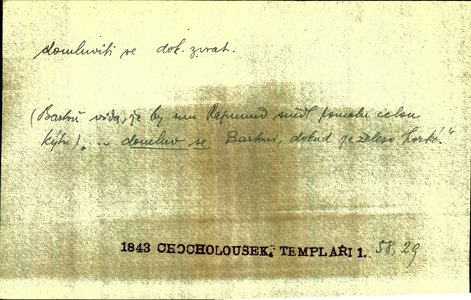 domluviti se dok. zvrat.
(Bartoš vida, že by mu Rejmund snědl pomalu celou
kýtu) „ .. domluv se Bartoši, dokud je železo horké.“
1843 CHOCHOLOUŠEK, TEMPLÁŘI 1. 58, 29